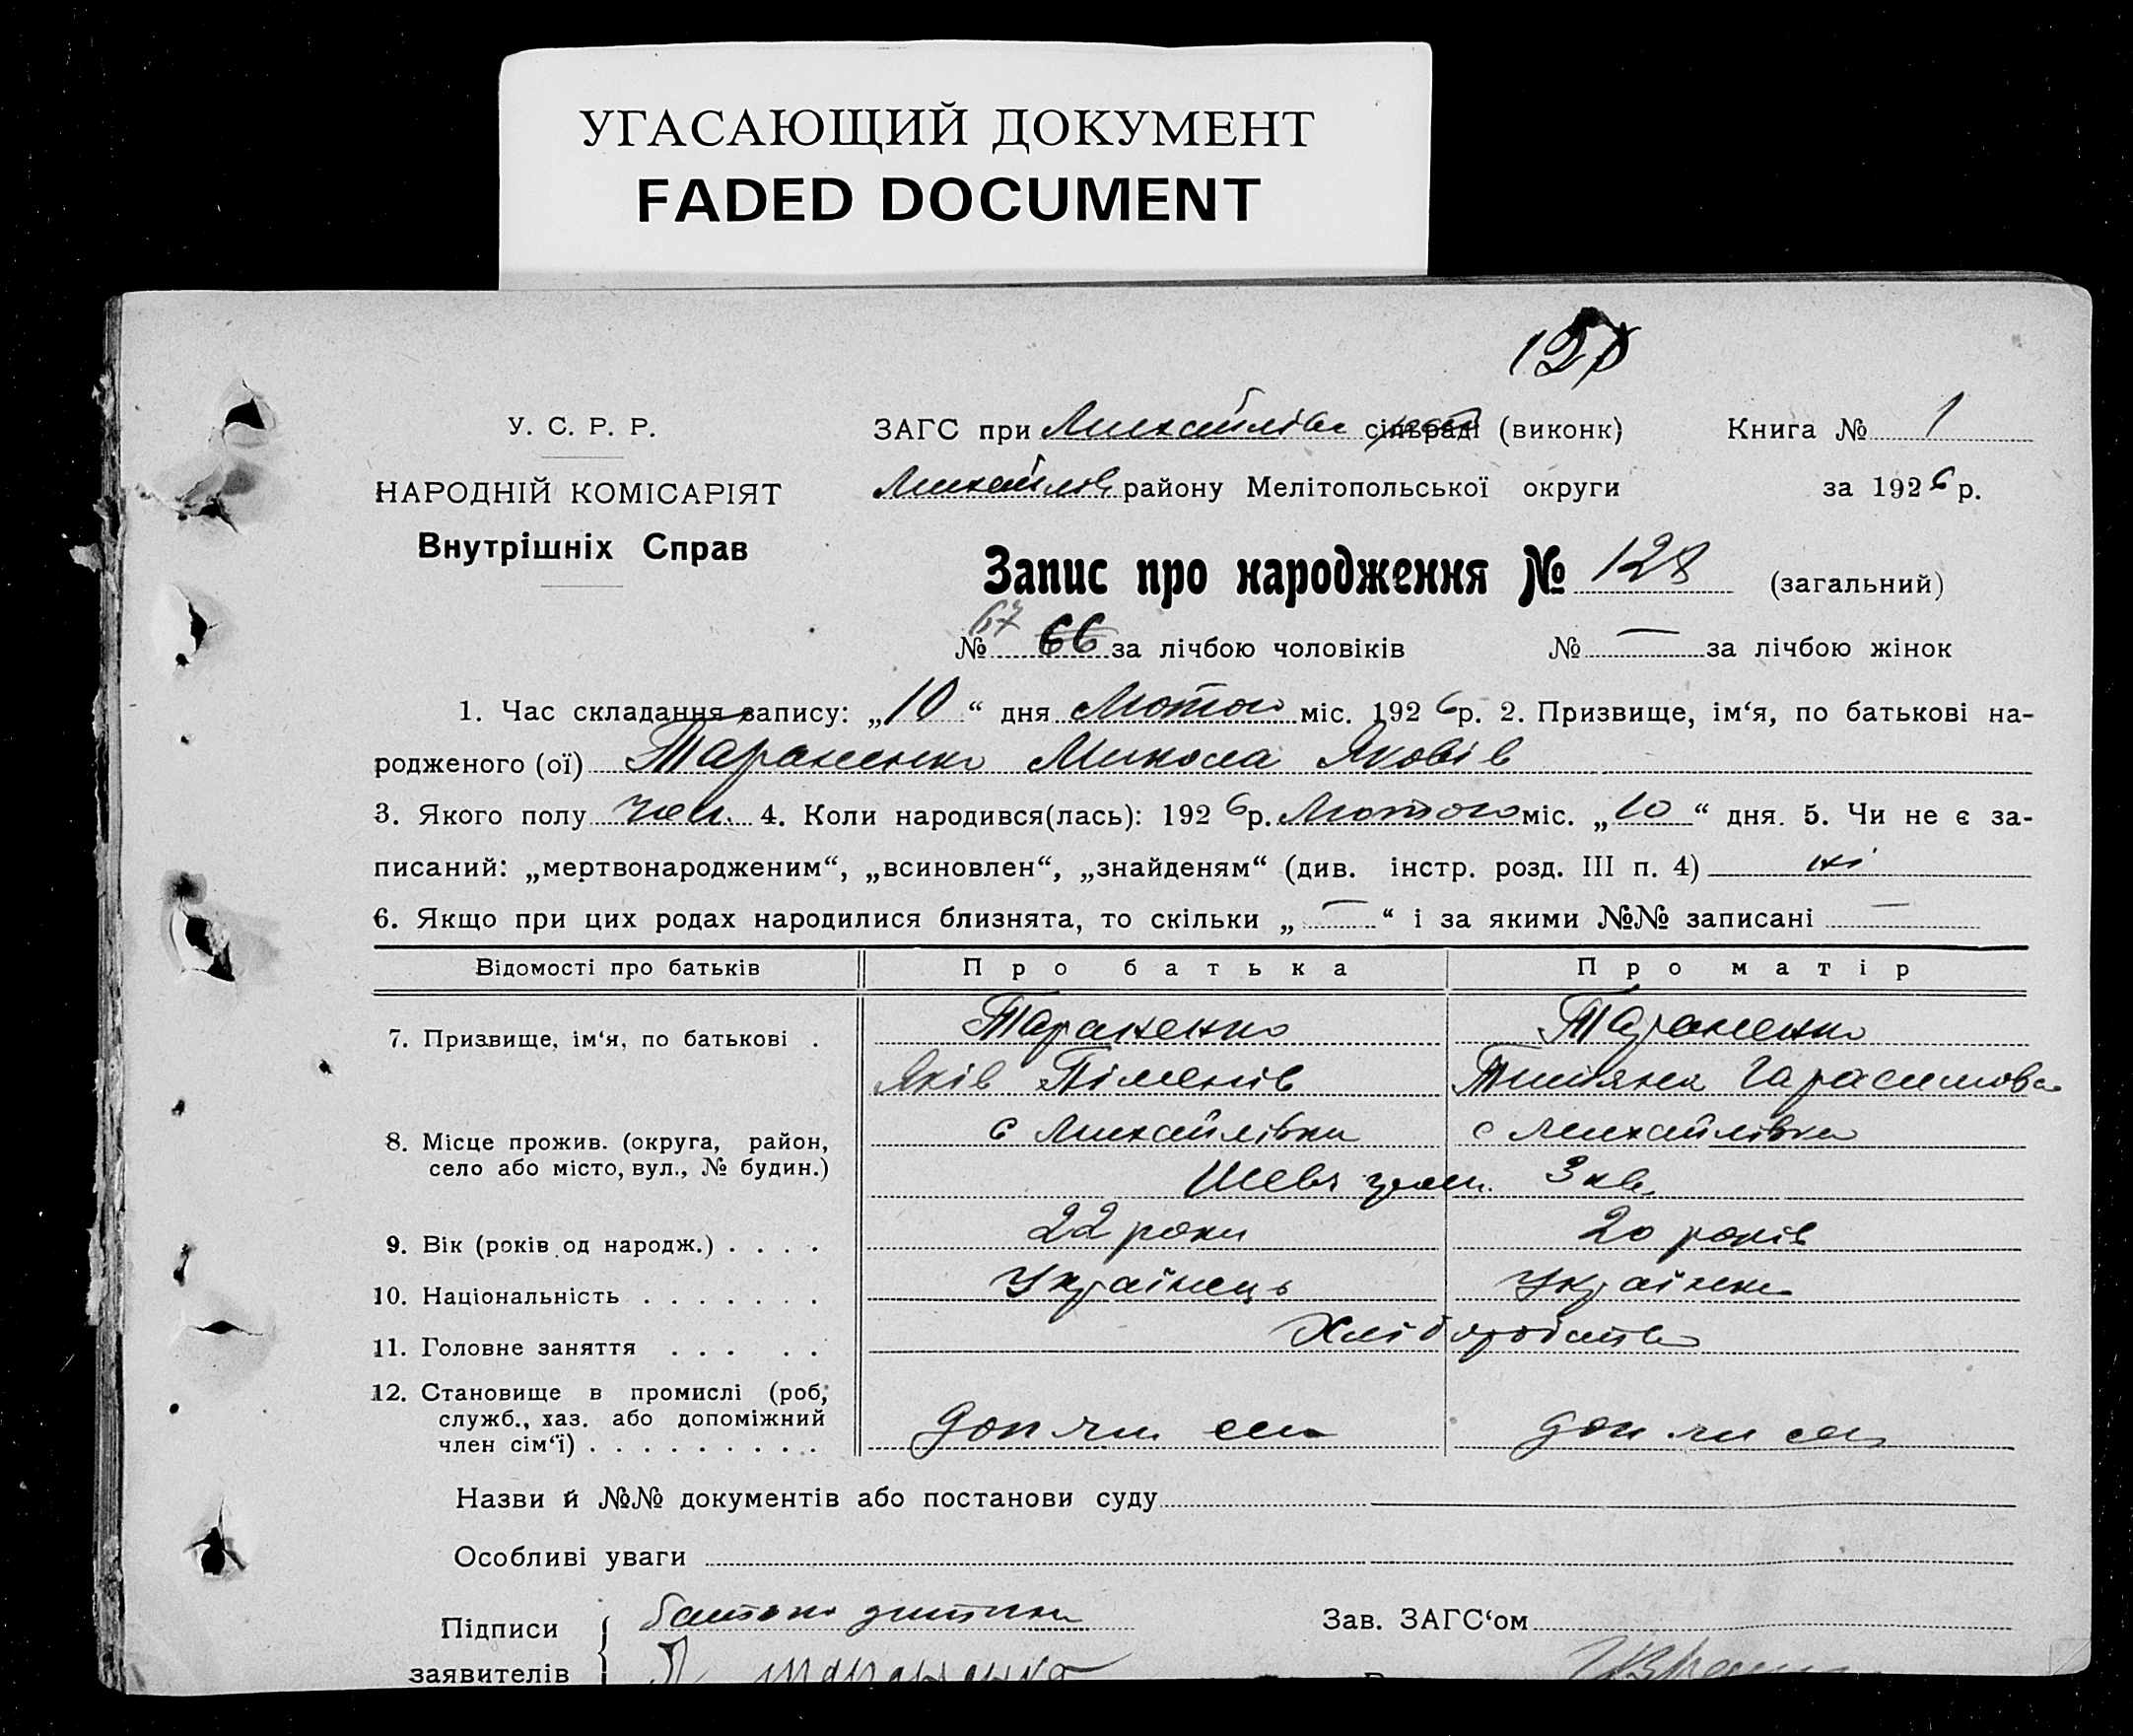 УГАСАЮЩИЙ ДОКУМЕНТ
FADED DOCUMENT
У. С. Р. Р.
НАРОДНІЙ КОМІСАРІЯТ
Внутрішніх Справ
ЗАГС при Михайлівс сільраді (виконк) Книга № 1
Михайлів району Мелітопольської округи за 1926 р.
Запис про народження № 128 (загальний)
67
№ 66 за лічбою чоловіків № — за лічбою жінок
1. Час складання запису: „10“ дня Лютого міс. 1926 р. 2. Призвище, ім‘я, по батькові на-
родженого (ої) Тараненко Микола Яковів
3. Якого полу чол. 4. Коли народився(лась): 1926 р. Лютого міс. „10“ дня. 5. Чи не є за-
писаний: „мертвонародженим“, „всиновлен“, „знайденям“ (див. інстр. розд. III п. 4) ні
6. Якщо при цих родах народилися близнята, то скільки „—“ і за якими №№ записані —
Відомості про батьків Про батька Про матір
7. Призвище, ім‘я, по батькові . Тараненко Тараненко
Яків Піменів Титяна Гарасимова
8. Місце прожив. (округа, район, с Михайлівка с Михайлівка
село або місто, вул., № будин.) Шевч 3 кв.
9. Вік (років од народж.) . . . . 22 роки 20 років
10. Національність . . . . . . . Українець Українка
11. Головне заняття . . . . . Хліборобство
12. Становище в промислі (роб,
служб., хаз. або допоміжний
член сім‘ї) . . . . . . . . . . доп чл сем доп чл сем
Назви й №№ документів або постанови суду
Особливі уваги
Підписи батько дитини Зав. ЗАГС‘ом
заявителів Я Тараненко